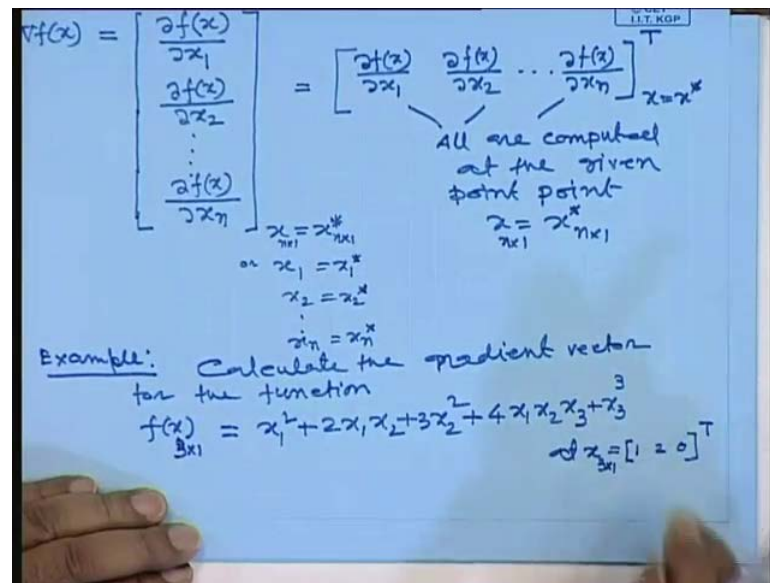 I.I.T. KGP
∇f(x) = [ ∂f(x)/∂x₁ ∂f(x)/∂x₂ ⋮ ∂f(x)/∂xₙ ] = [ ∂f(x)/∂x₁ ∂f(x)/∂x₂ ... ∂f(x)/∂xₙ ]ᵀ x=x*
All are computed
at the given
point point
x n×1 = x* n×1
x n×1 = x* n×1
or x₁ = x₁*
x₂ = x₂*
⋮
xₙ = xₙ*
Example: Calculate the gradient vector
for the function
f(x) 3×1 = x₁² + 2x₁x₂ + 3x₂² + 4x₁x₂x₃ + x₃³
at x 3×1 = [1 2 0]ᵀ